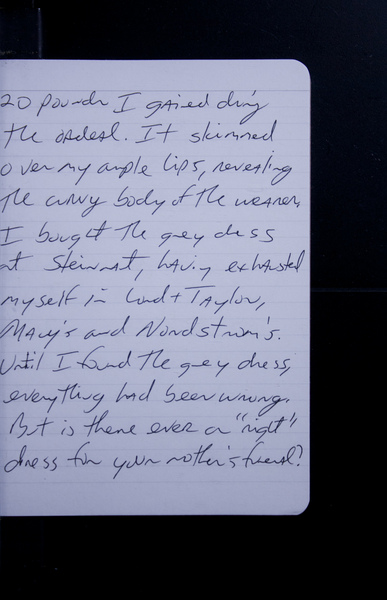 20 pounds I gained during
the ordeal. It skimmed
over my ample hips, revealing
the curvy body of the wearer.
I bought the grey dress
at Steinmart, having exhausted
myself in Lord + Taylor,
Macy's and Nordstrom's.
Until I found the grey dress,
everything had been wrong.
But is there ever a "right"
dress for your mother's funeral?